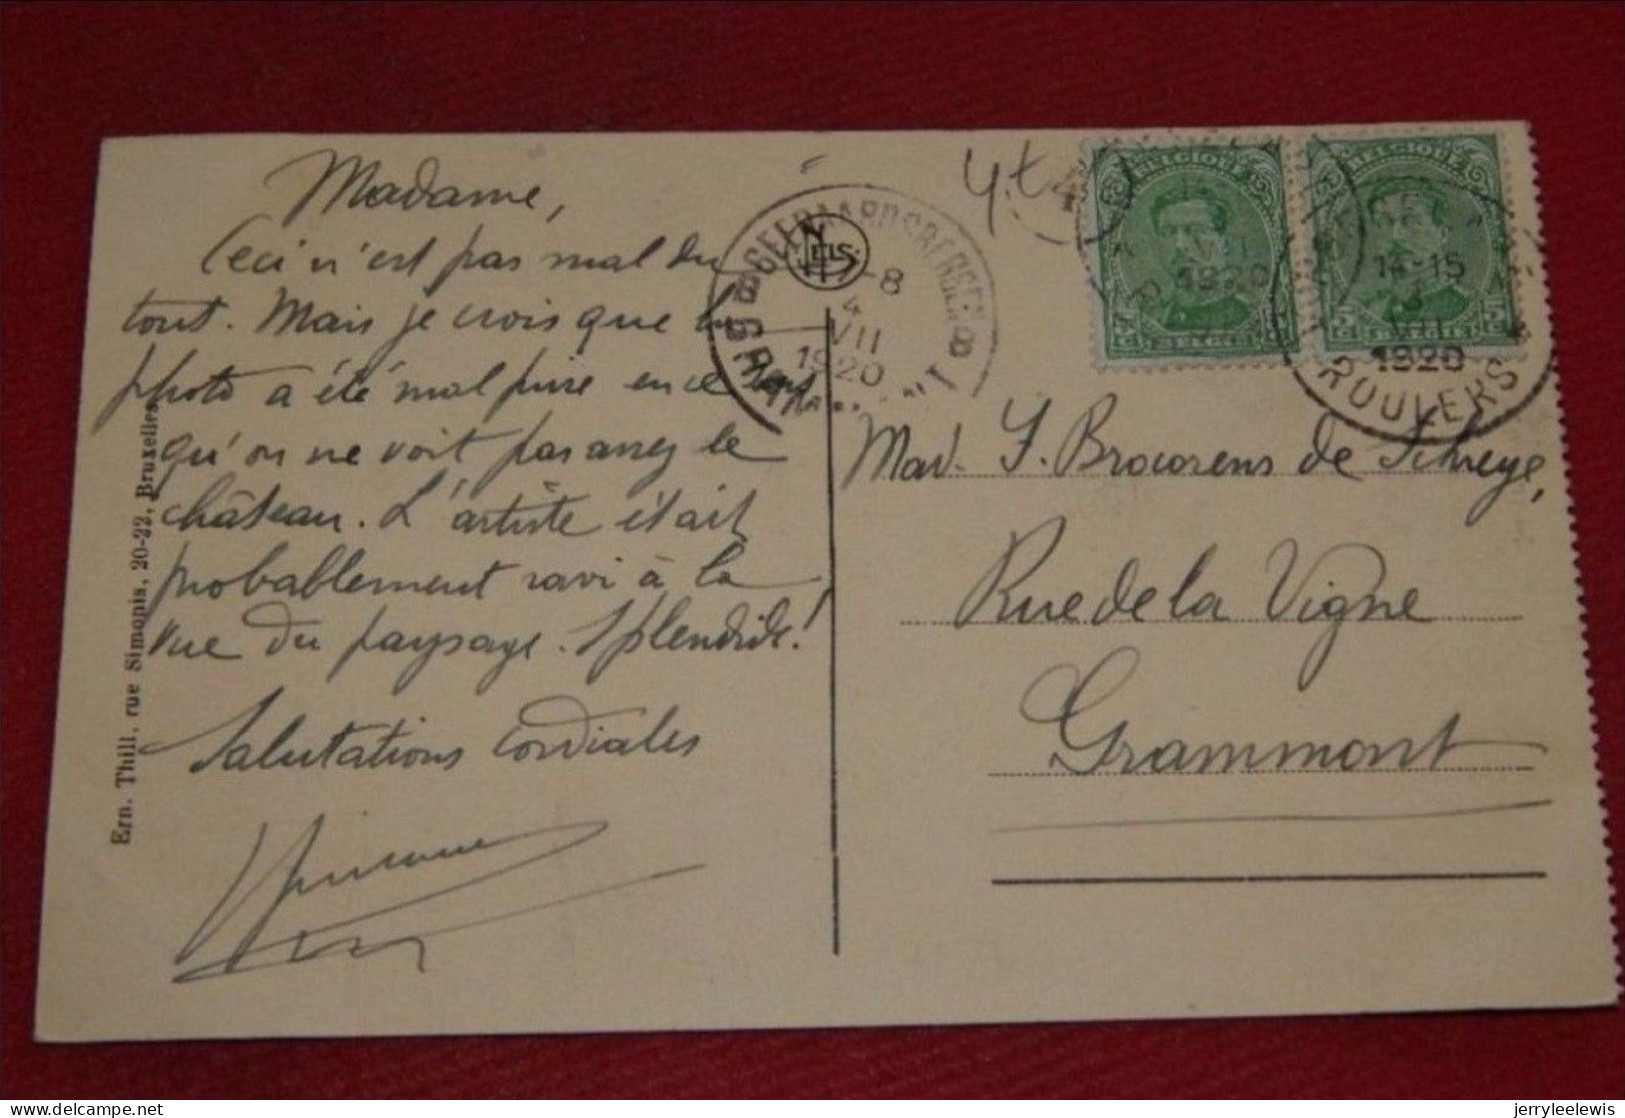 Madame,
Ceci n'est pas mal du
tout. Mais je crois que la
photo a été mal prise en ce sens
qu'on ne voit pas assez le
château. L'artiste était
probablement ravi à la
vue du paysage. Splendide!
Salutations cordiales
Ern. Thill, rue Simonis, 20-22, Bruxelles
NELS
GEERAARDSBERGEN
7-8
4
VII
1920
BELGIQUE
5 C BELGIË 5 C
1920
BELGIQUE
5 C BELGIË 5 C
14-15
3
VII
1920
ROULERS
Mad. J. de
Rue de la Vigne
Grammont
delcampe.net
jerryleelewis